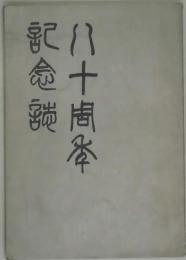 八十周年
記念誌